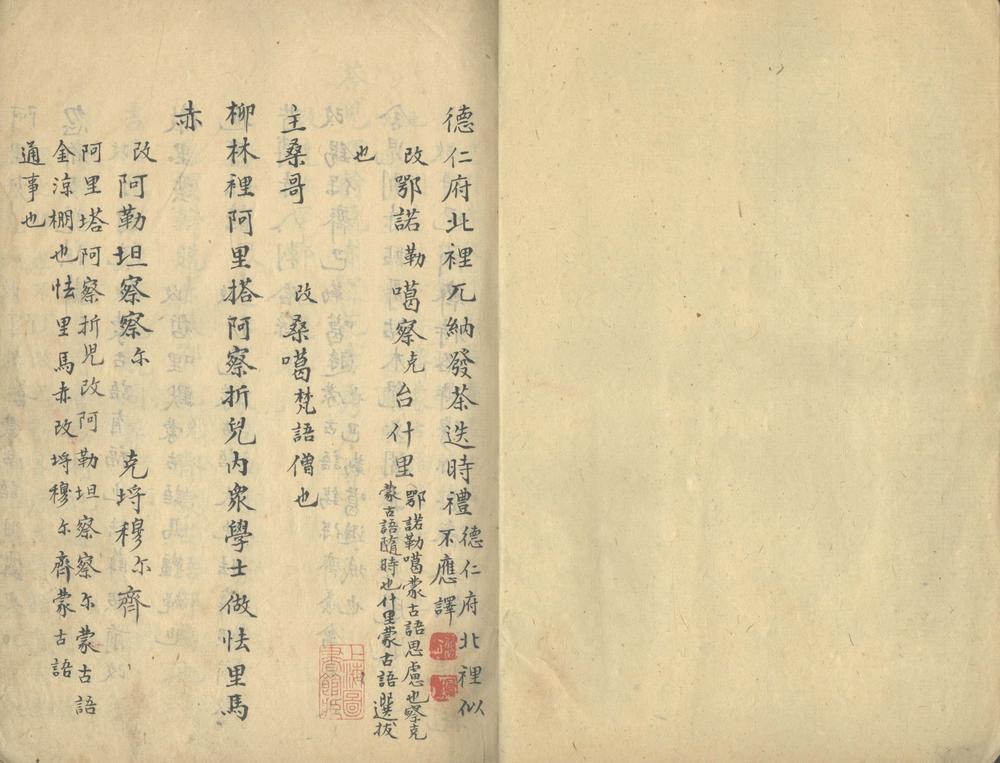 德仁府北裡兀納發荼迭時禮德仁府北裡似
不應譯
改鄂諾勒噶察克台什里鄂諾勒噶蒙古語思慮也察克
蒙古語隨時也什里蒙古語選拔
也
主桑哥 改桑噶梵語僧也
柳林裡阿里撘阿察折兒內衆學士做怯里馬
赤
改阿勒坦察察尔 克埒穆尔齊
阿里塔阿察折児改阿勒坦察察尔蒙古語
金涼棚也怯里馬赤改埒穆尔齊蒙古語
通事也
上海圖
書館藏